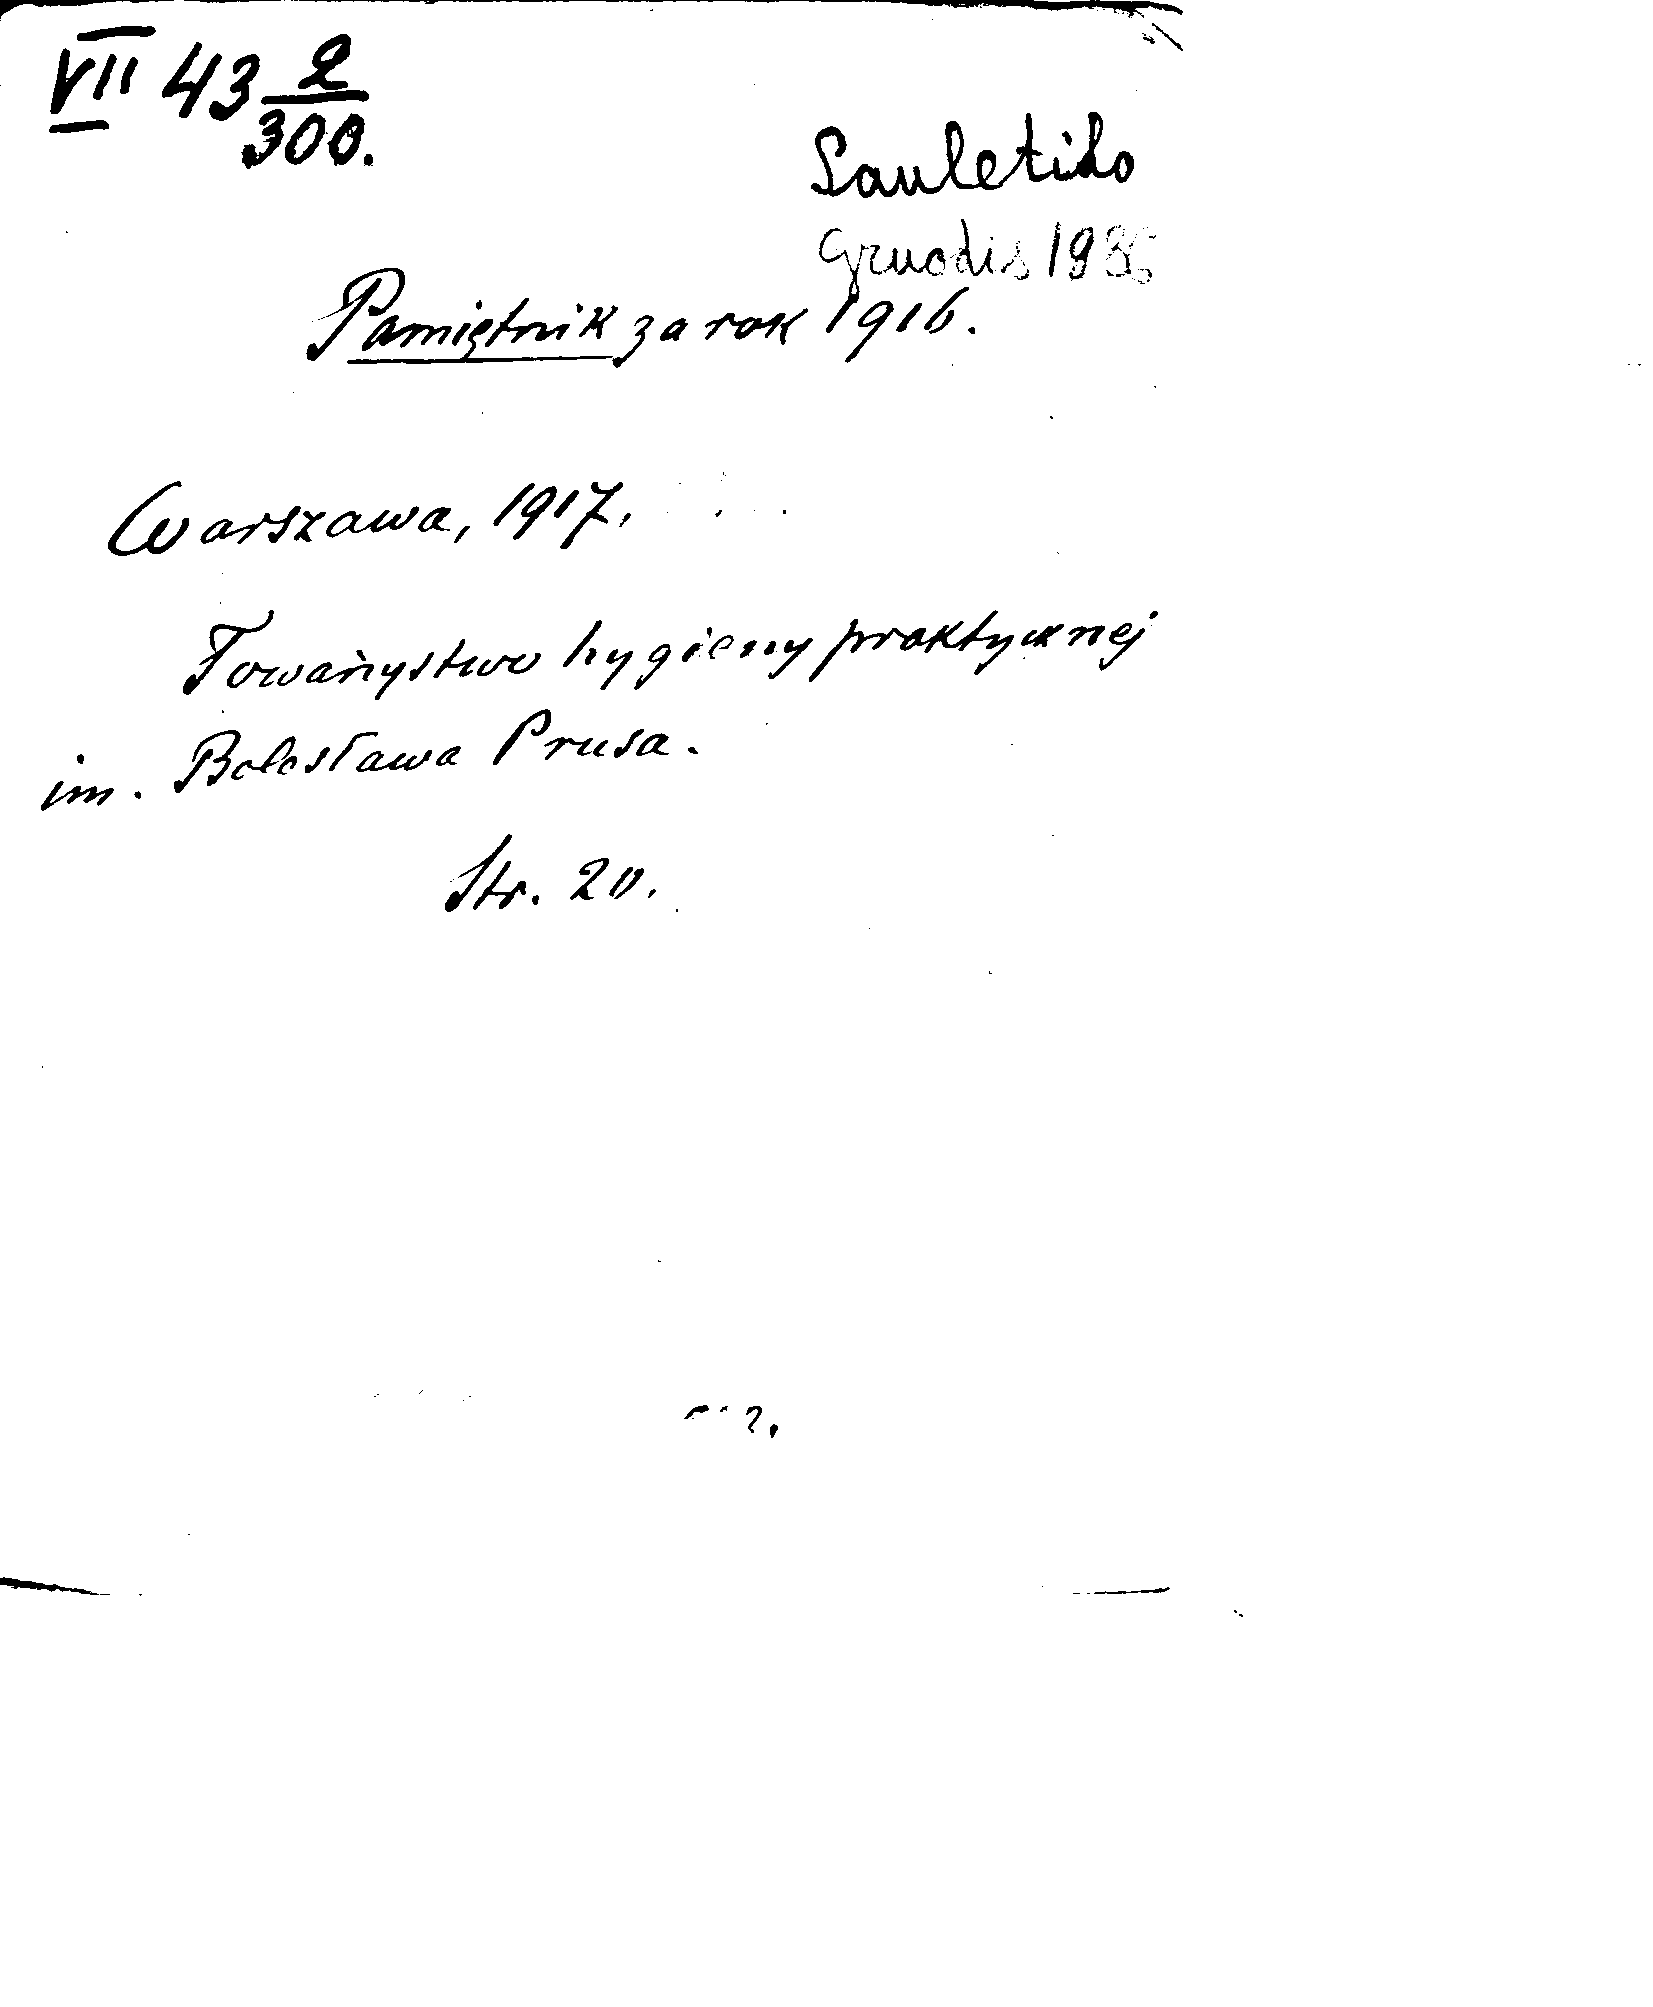 VII 43 2/300.
Sauletiko
Gruodis 198
Pamiętnik za rok 1916.
Warszawa, 1917.
Towarzystwo hygieny praktycznej
im. Bolesława Prusa.
Str. 20.